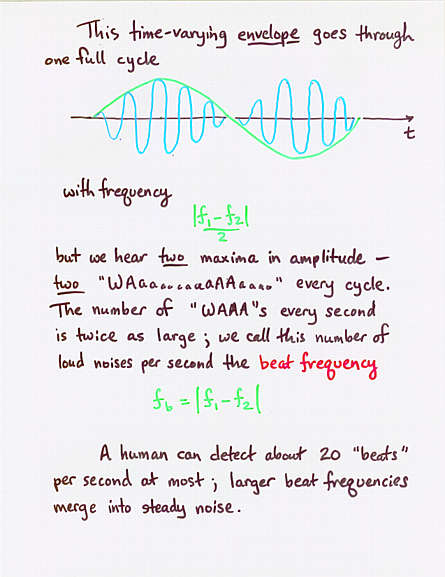 This time-varying envelope goes through
one full cycle
t
with frequency
|f₁-f₂|
2
but we hear two maxima in amplitude —
two "WAaa......aaAAaaaa" every cycle.
The number of "WAAA"s every second
is twice as large; we call this number of
loud noises per second the beat frequency
f_b = |f₁-f₂|
A human can detect about 20 "beats"
per second at most; larger beat frequencies
merge into steady noise.